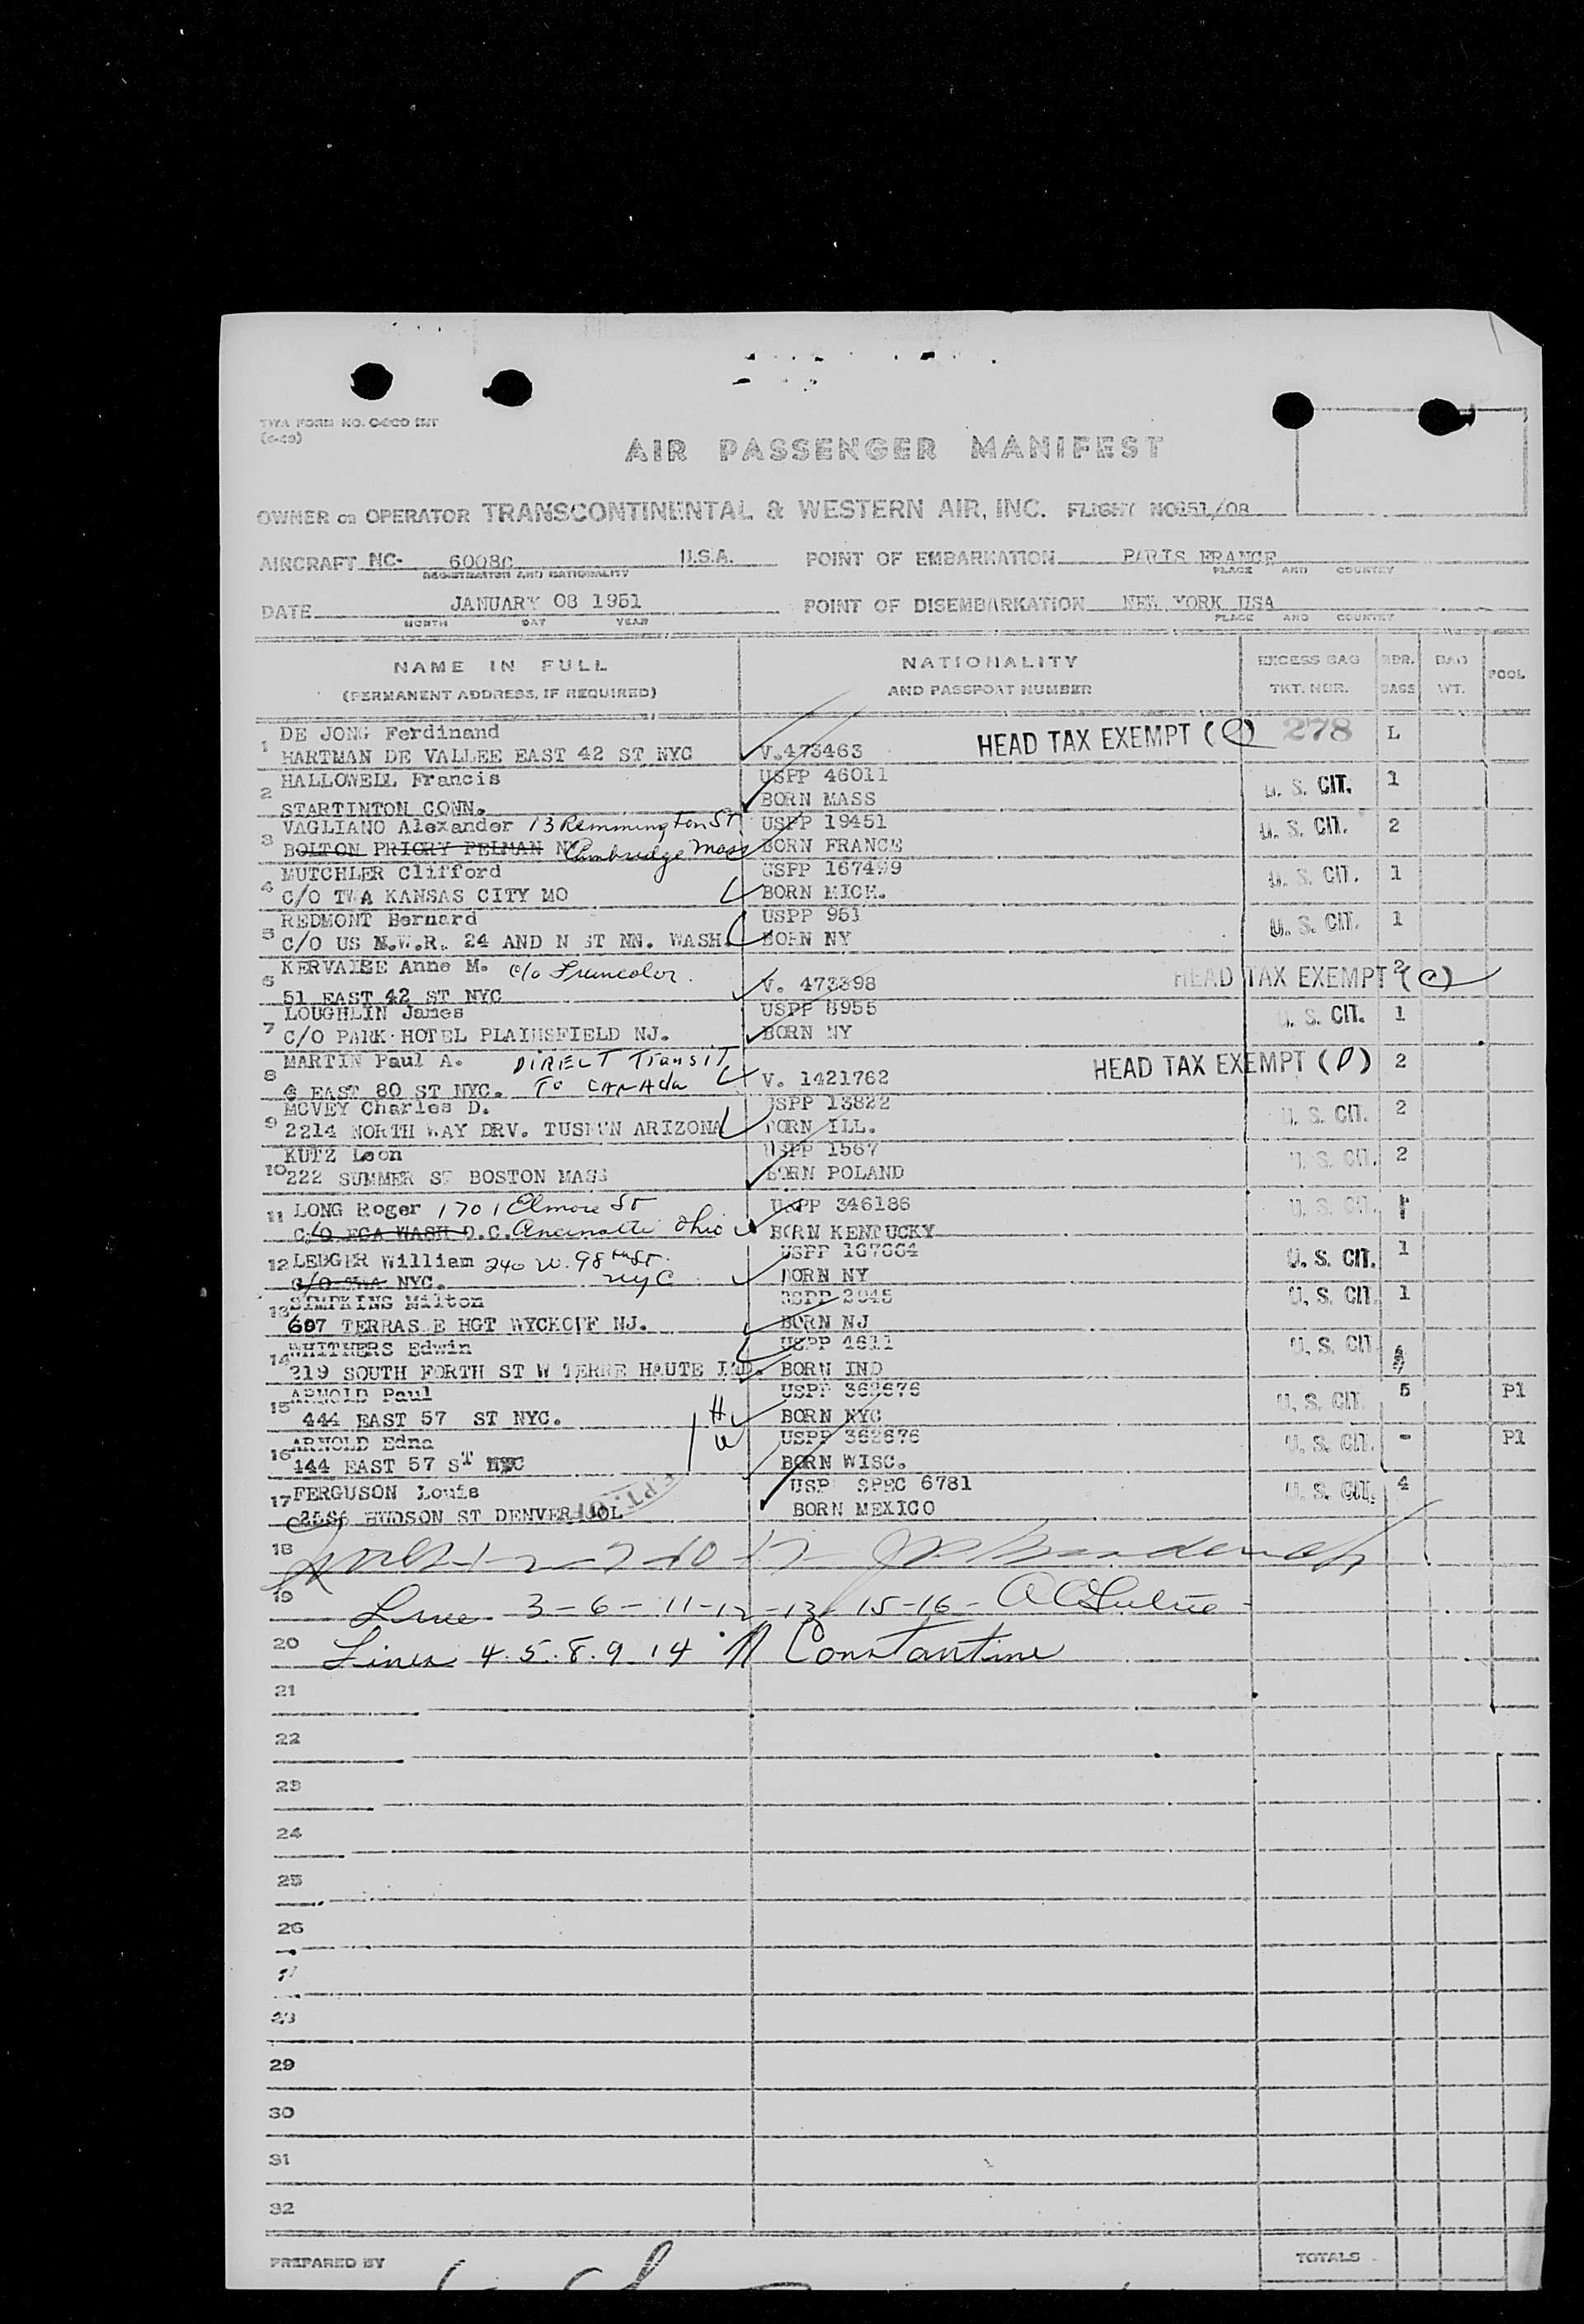 TWA FORM NO.
AIR PASSENGER MANIFEST
OWNER OR OPERATOR TRANSCONTINENTAL & WESTERN AIR, INC. FLIGHT NO
AIRCRAFT NC- 6008C U.S.A. POINT OF EMBARKATION PARIS FRANCE
REGISTRATION AND NATIONALITY PLACE AND COUNTRY
DATE JANUARY 08 1951 POINT OF DISEMBARKATION NEW YORK USA
MONTH DAY YEAR PLACE AND COUNTRY
NAME IN FULL NATIONALITY EXCESS BAG NBR. BAG POOL
(PERMANENT ADDRESS, IF REQUIRED) AND PASSPORT NUMBER TKT. NBR. BAGS WT.
1 DE JONG Ferdinand HEAD TAX EXEMPT (C) 278 L
HARTMAN DE VALLEE EAST 42 ST NYC V.473463
2 HALLOWELL Francis USPP 46011 U. S. CIT. 1
STARTINTON CONN. BORN MASS
3 VAGLIANO Alexander 13 Remmington St. USPP 19451 U. S. CIT. 2
BOLTON PRIORY PELMAN NY Cambridge Mass BORN FRANCE
4 MUTCHLER Clifford USPP 167499 U. S. CIT. 1
C/O TWA KANSAS CITY MO BORN MICH.
5 REDMONT Bernard USPP 951 U. S. CIT. 1
C/O US N.W.R. 24 AND N ST NN. WASH. BORN NY
6 KERVAISE Anne M. c/o HEAD TAX EXEMPT (C) 2
51 EAST 42 ST NYC V. 473398
7 LOUGHLIN James USPP 8955 U. S. CIT. 1
C/O PARK HOTEL PLAINSFIELD NJ. BORN NY
8 MARTIN Paul A. DIRECT Transit HEAD TAX EXEMPT (D) 2
EAST 80 ST NYC. To CANAda V. 1421762
9 MCVEY Charles D. USPP 13822 U. S. CIT. 2
2214 NORTH WAY DRV. ARIZONA BORN ILL.
10 KUTZ Leon USPP 1567 U. S. CIT. 2
222 SUMMER ST BOSTON MASS BORN POLAND
11 LONG Roger 1701 Elmore St USPP 346186 U. S. CIT. 1
C/O ECA WASH D.C. Cincinatti Ohio BORN KENTUCKY
12 LEDGER William 240 W. 98th St. USPP U. S. CIT. 1
C/O TWA NYC. NYC BORN NY
13 SIMPKINS Milton USPP 2045 U. S. CIT. 1
607 TERRASE HGT WYCKOFF NJ. BORN NJ
14 WHITHERS Edwin USPP 4611 U. S. CIT.
219 SOUTH FORTH ST W TERRE HAUTE IND. BORN IND
15 ARNOLD Paul USPP 362676 U. S. CIT. 5 P1
444 EAST 57 ST NYC. H BORN NYC
16 ARNOLD Edna W USPP 362676 U. S. CIT. - P1
444 EAST 57 ST NYC BORN WISC.
17 FERGUSON Louis USP SPEC 6781 U. S. CIT. 4
HUDSON ST DENVER COL BORN MEXICO
18
19 Line 3-6-11-12-13-15-16-
20 Lines 4.5.8.9.14 Constantine
21
22
23
24
25
26
29
30
31
32
PREPARED BY TOTALS